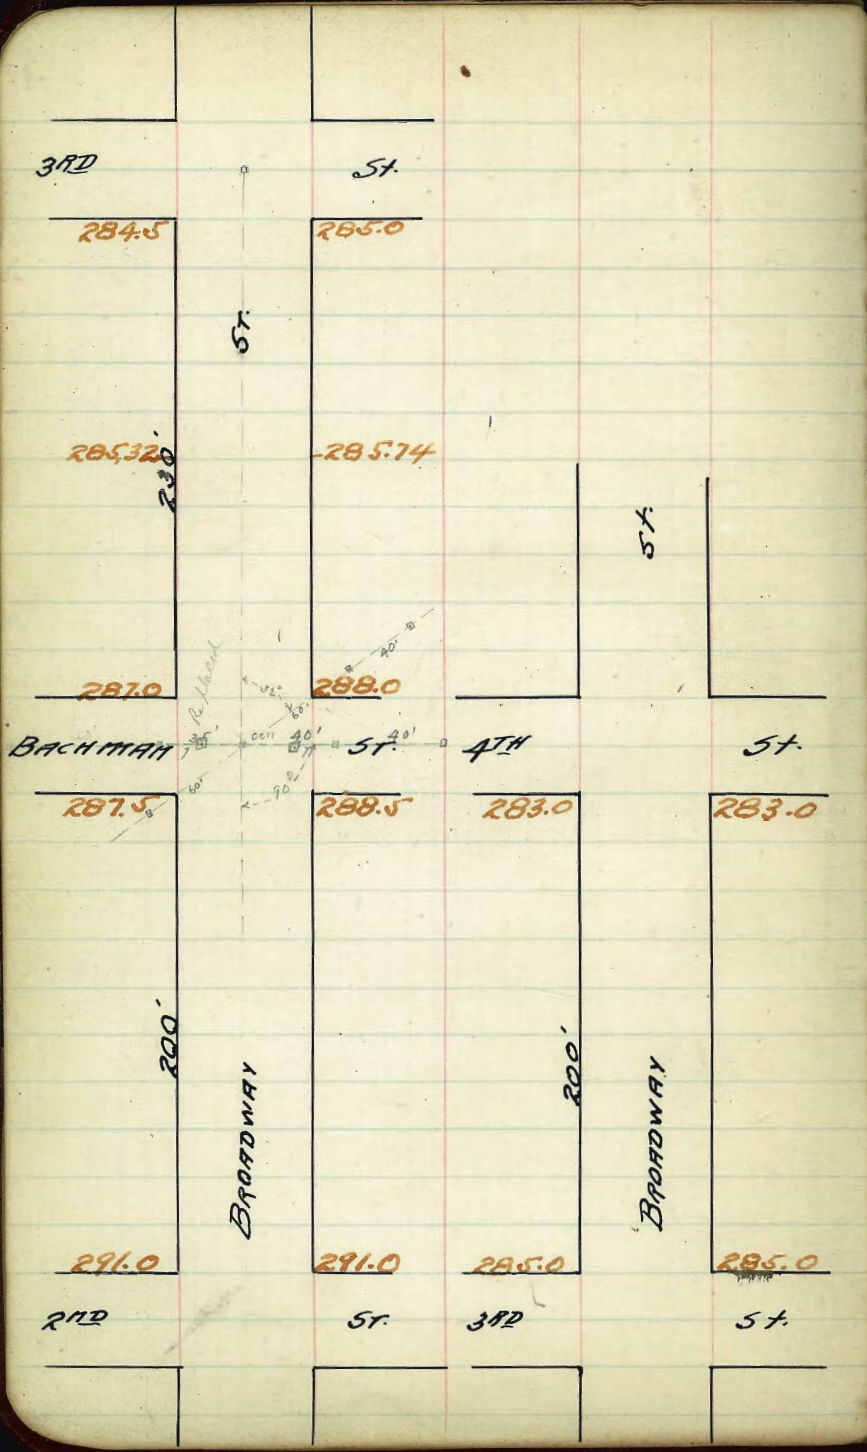 3RD St.
284.5 285.0
St.
285.32 285.74
230'
St.
40'
Replaced
287.0 52° 288.0
60'
BACHMAN 35' cen 40' ST. 40' 4TH St.
60' 90°
287.5 288.5 283.0 283.0
200' 200'
BROADWAY BROADWAY
291.0 291.0 285.0 285.0
2ND ST. 3RD St.